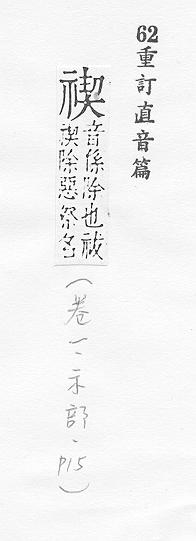 62重訂直音篇
禊音係除也祓
禊除惡祭名
(卷一、示部、P15)